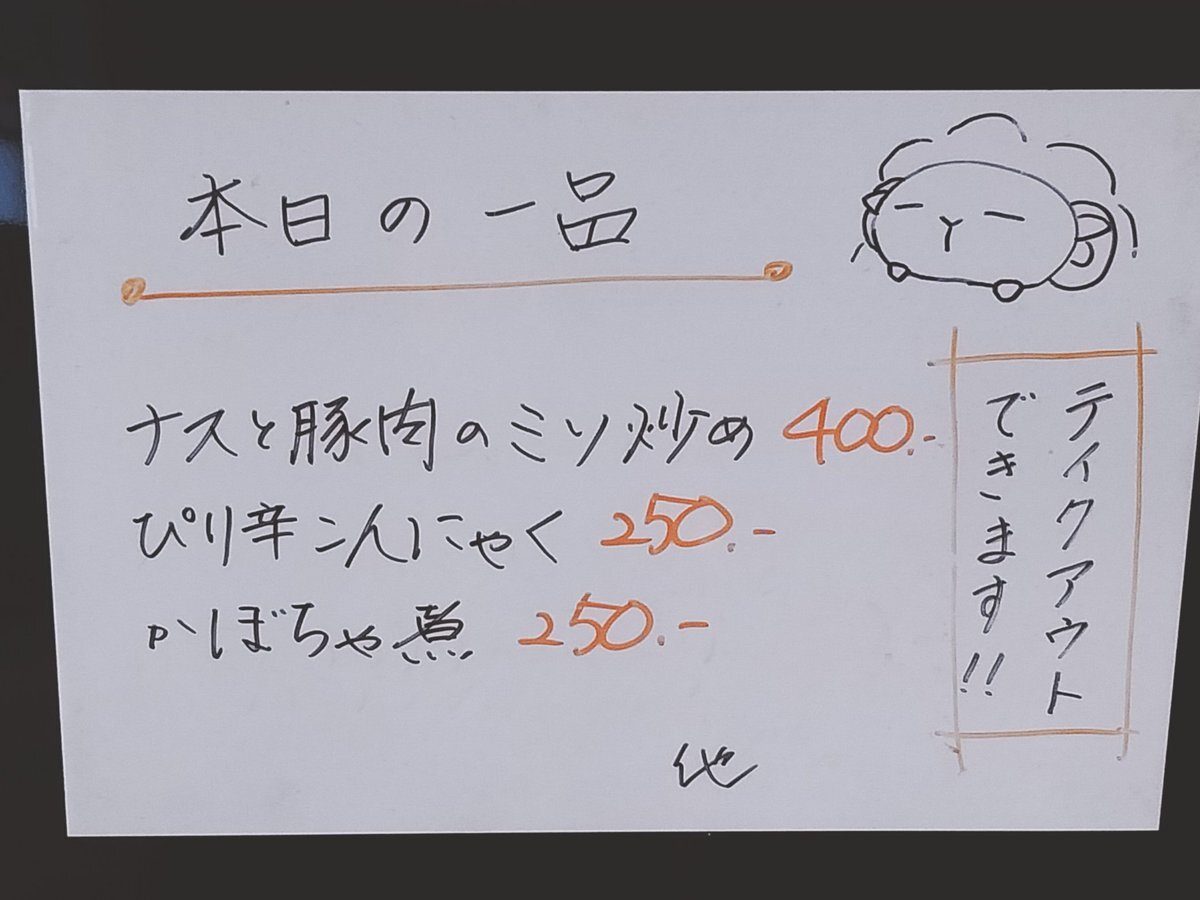 本日の一品
ナスと豚肉のミソ炒め 400.-
ぴり辛こんにゃく 250.-
かぼちゃ煮 250.-
他
テイクアウト
できます!!